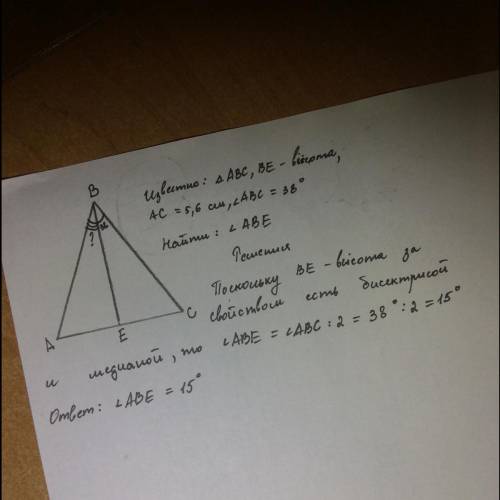 B
?
38
A
E
C
Известно: △ABC, BE - высота,
AC = 5,6 см, ∠ABC = 38°
Найти: ∠ABE
Решения
Поскольку BE - высота за
свойством есть бисектрисой
и медианой, то ∠ABE = ∠ABC : 2 = 38° : 2 = 15°
Ответ: ∠ABE = 15°